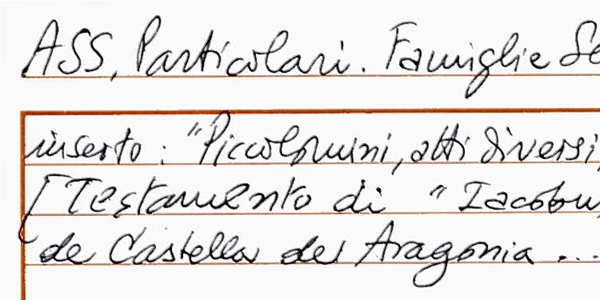 ASS, Particolari. Famiglie Se
inserto: "Piccolomini, atti diversi,
[Testamento di "Iacobu
de Castella de Aragonia ...